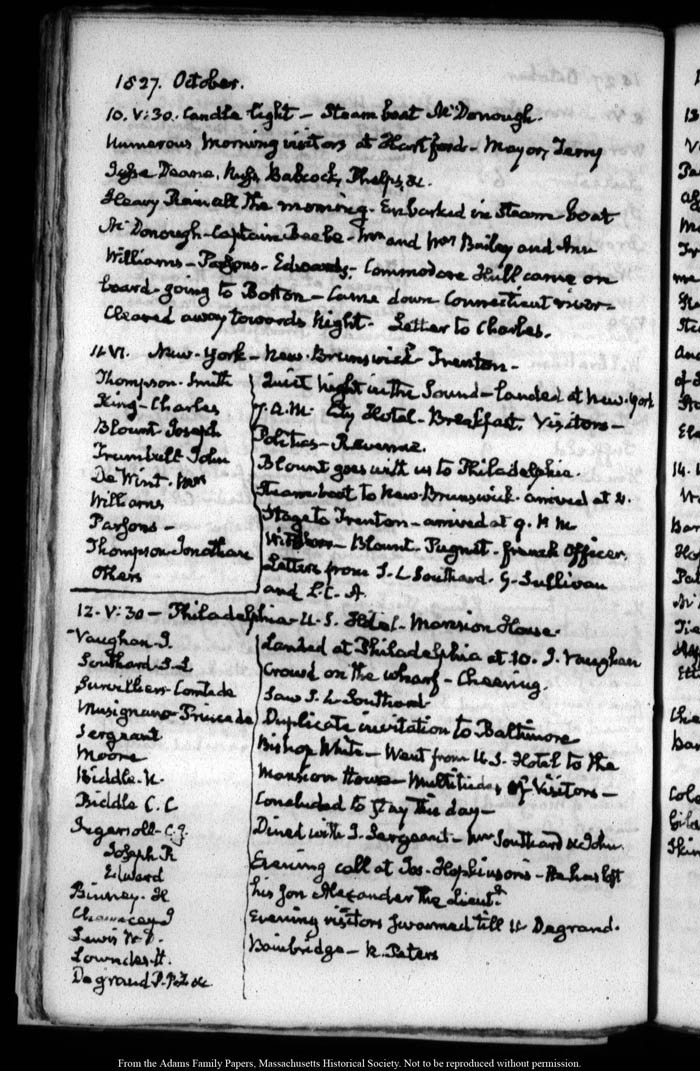 1827. October.
10. V:30. Candle light – Steam boat McDonough.
Numerous Morning visitors at Hartford – Mayor, Terry
Deane, Babcock, Phelps, &c.
Heavy Rain all the morning. Embarked in Steam-boat
McDonough – Captain Beebe – Mr and Mrs Bailey and
Williams – Parsons – Edwards – Commodore Hull came on
board going to Boston – Came down Connecticut river –
Cleared away towards Night. Letter to Charles.
11. VI. New-York – New-Brunswick – Trenton –
Thompson. Smith
King – Charles
Blount Joseph
Trumbull John
De Wint. Mrs
Williams
Parsons –
Thompson Jonathan
Others
Quiet night in the Sound – landed at New-York
7. A.M. City Hotel – Breakfast. Visitors –
Politics – Revenue.
Blount goes with us to Philadelphia.
Steamboat to New-Brunswick. arrived at 4.
Stage to Trenton – arrived at 9. P M.
Visitors – Blount. Pugnet – french Officer.
Letters from S. L. Southard. G. Sullivan
and L. C. A.
12. V:30 – Philadelphia – U.S. Hotel. Mansion House.
Vaughan J.
Southard S. L
Survilliers Comte de
Musignano – Prince de
Sergeant
Moore
Biddle. N.
Biddle C. C
Ingersoll – C. J.
Joseph R
Edward
Binney. H
Chauncey I
Lewis W. D.
Lowndes. H.
Degrand P. P. F. &c
Landed at Philadelphia at 10. J. Vaughan
Crowd on the wharf – Cheering.
Saw S. L. Southard
Duplicate invitation to Baltimore
Bishop White – Went from U.S. Hotel to the
Mansion House – Multitudes of Visitors –
Concluded to stay this day –
Dined with J. Sergeant – Mr Southard & John.
Evening call at Jos. Hopkinson's – He has lost
his son Alexander the Lieutt.
Evening visitors swarmed till 11 Degrand.
Bainbridge – R. Peters
From the Adams Family Papers, Massachusetts Historical Society. Not to be reproduced without permission.